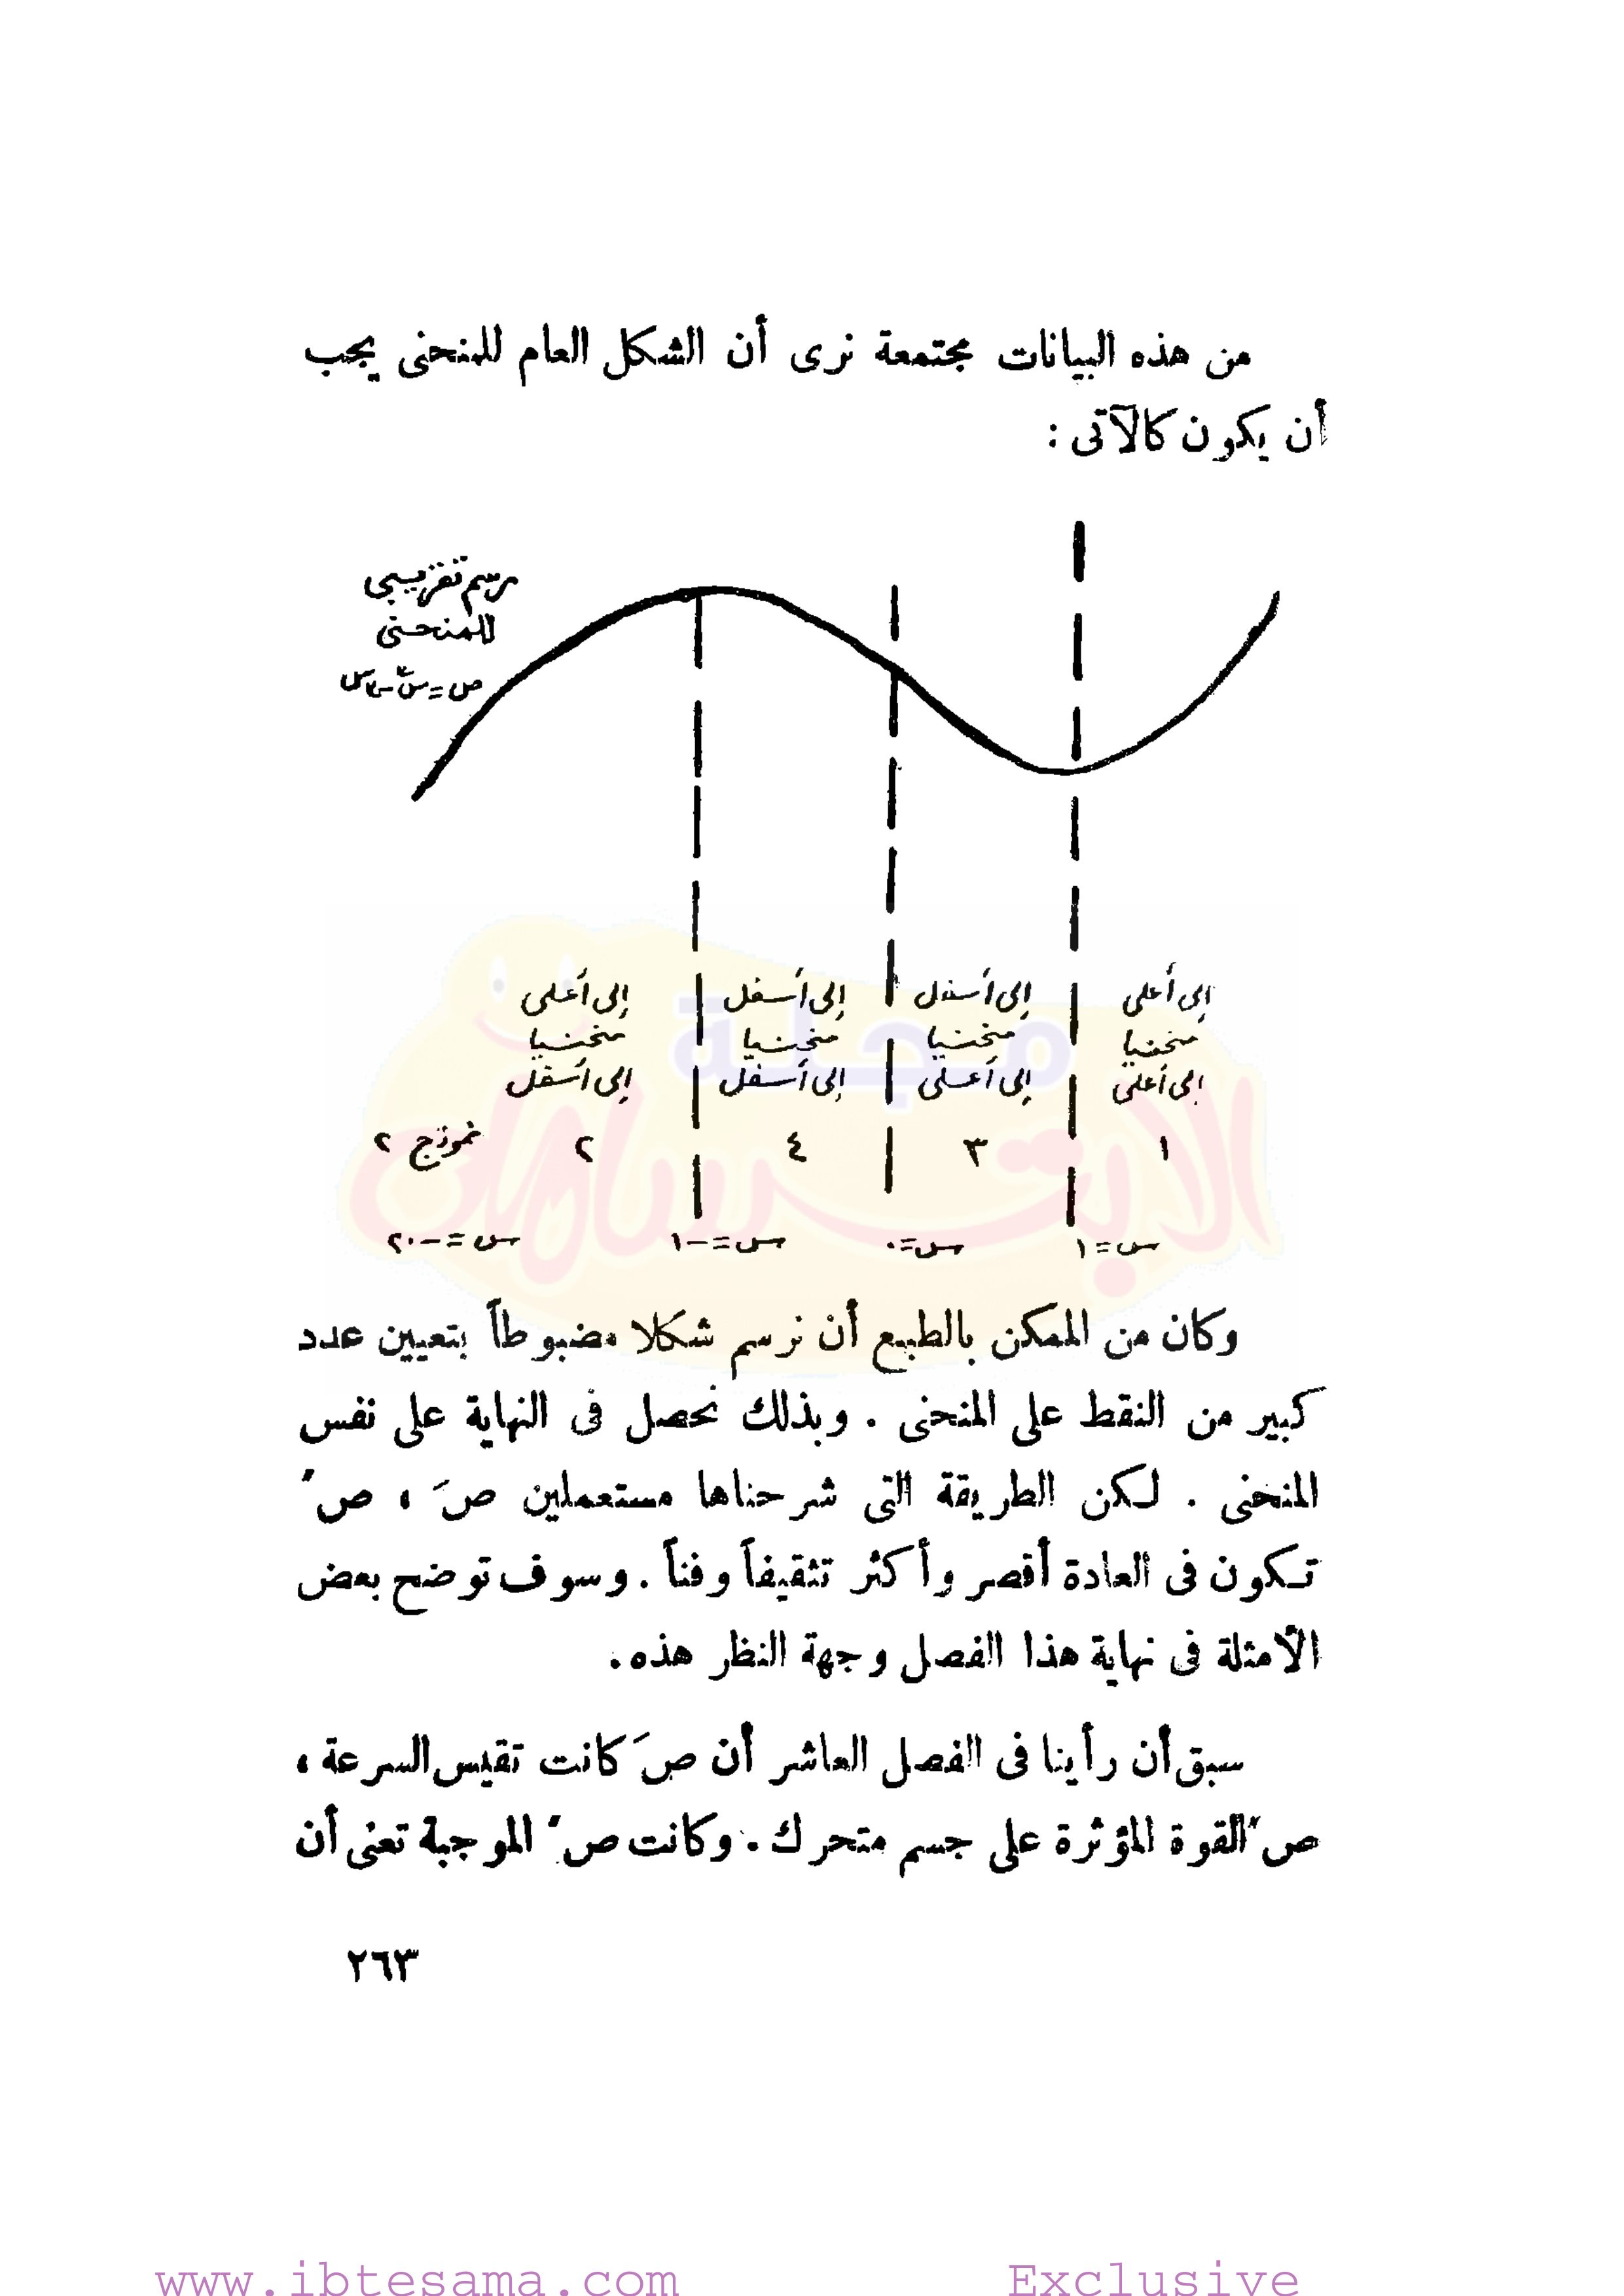 من هذه البيانات مجتمعة نرى أن الشكل العام للمنحنى يجب
أن يكون كالآتى :
رسم تقريبى
للمنحنى
إلى أعلى
منحنيا
إلى أعلى
١
إلى أسفل
منحنيا
إلى أعلى
٣
إلى أسفل
منحنيا
إلى أسفل
٤
إلى أعلى
منحنيا
إلى أسفل
٢
نموذج ٢
س = ١
س = ٠
س = -١
س = -٢٠
وكان من الممكن بالطبع أن نرسم شكلا مضبوطاً بتعيين عدد
كبير من النقط على المنحنى . وبذلك نحصل فى النهاية على نفس
المنحنى . لكن الطريقة التى شرحناها مستعملين صَ ، ص ً
تكون فى العادة أقصر وأكثر تثقيفاً وفناً . وسوف توضح بعض
الأمثلة فى نهاية هذا الفصل وجهة النظر هذه .
سبق أن رأينا فى الفصل العاشر أن صَ كانت تقيس السرعة ،
ص ً القوة المؤثرة على جسم متحرك . وكانت ص ً الموجبة تعنى أن
٢٦٣
مجلة
الابتسامة
www.ibtesama.com Exclusive